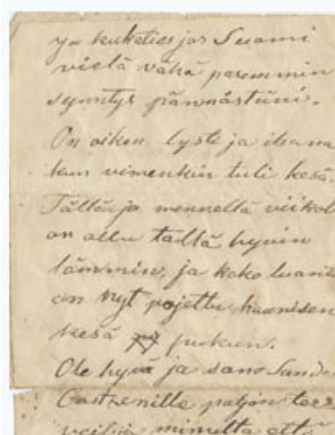 ja kuketies jos Suomi
vielä vähä paremmin
On oiken lysti ja ihana
kun vimenkin tuli kesä.
Tällä ja mennellä viikol
on ollu täällä hyvin
lämmin, ja koko luanto
on nyt pojettu kaanisen
kesä pukun.
Ole hyvä ja sano Sand
Castrenille paljon ter
minulta että